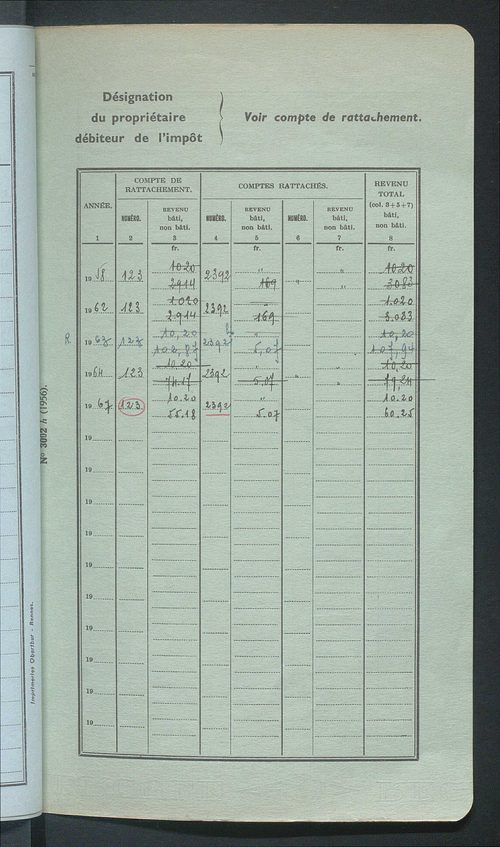 Désignation
du propriétaire
débiteur de l'impôt
Voir compte de rattachement.
ANNÉE. COMPTE DE RATTACHEMENT. COMPTES RATTACHÉS. REVENU TOTAL
(col. 3+5+7)
bâti,
non bâti.
NUMÉRO. REVENU bâti, non bâti. NUMÉRO. REVENU bâti, non bâti. NUMÉRO. REVENU bâti, non bâti.
1 2 3 4 5 6 7 8
fr. fr. fr. fr.
1020 " " 1020
1958 123 2914 2392 169 " 3083
1.020 " 1.020
1962 123 2914 2392 169 3.083
10,20 10,20
R. 2392 5,07 107,94
10.20 10,20
1964 123 74.17 2392 5.07 " " 79,24
10.20 " 10.20
1967 123 55.18 2392 5.07 60.25
19
19
19
19
19
19
19
19
19
19
N° 3002 h (1956).
Imprimeries Oberthur - Rennes.